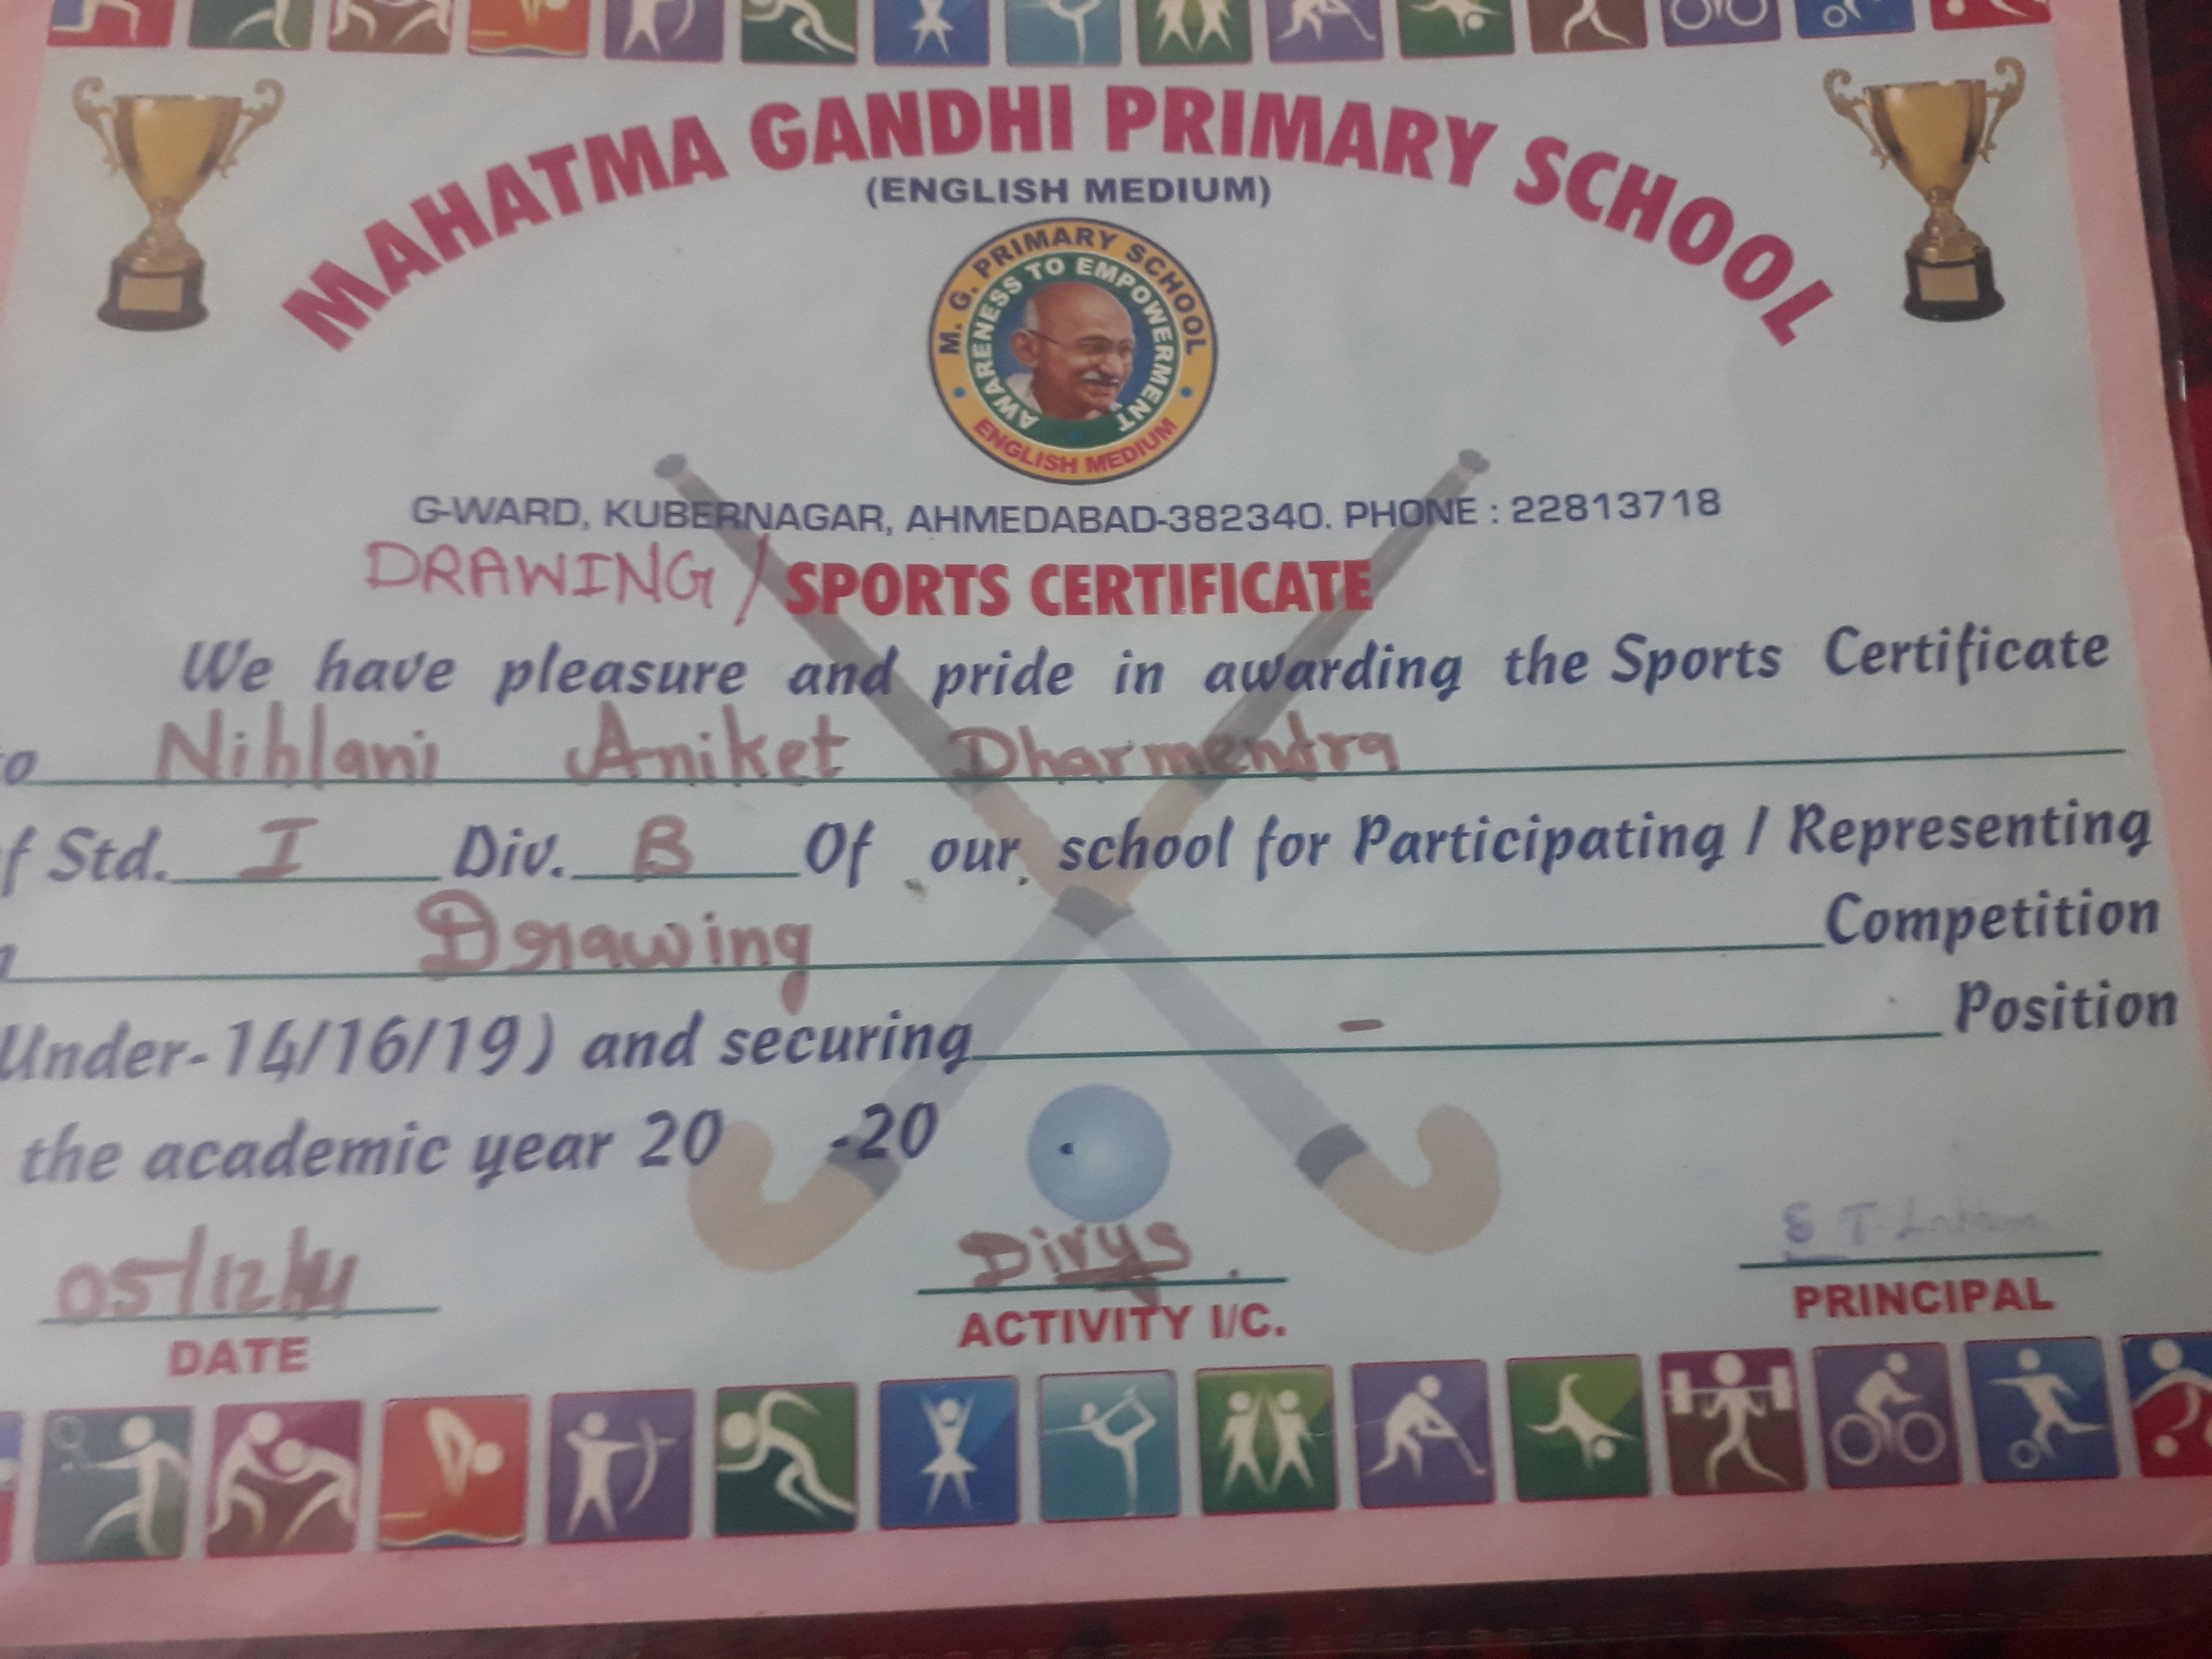 MAHATMA GANDHI PRIMARY SCHOOL
(ENGLISH MEDIUM)
M. G. PRIMARY SCHOOL
AWARENESS TO EMPOWERMENT
ENGLISH MEDIUM
G-WARD, KUBERNAGAR, AHMEDABAD-382340. PHONE : 22813718
DRAWING / SPORTS CERTIFICATE
We have pleasure and pride in awarding the Sports Certificate
Nihlani Aniket Dharmendra
Std. I Div. B Of our school for Participating / Representing
Drawing Competition
Under-14/16/19) and securing - Position
the academic year 20 -20
05/12/
DATE
ACTIVITY I/C.
PRINCIPAL